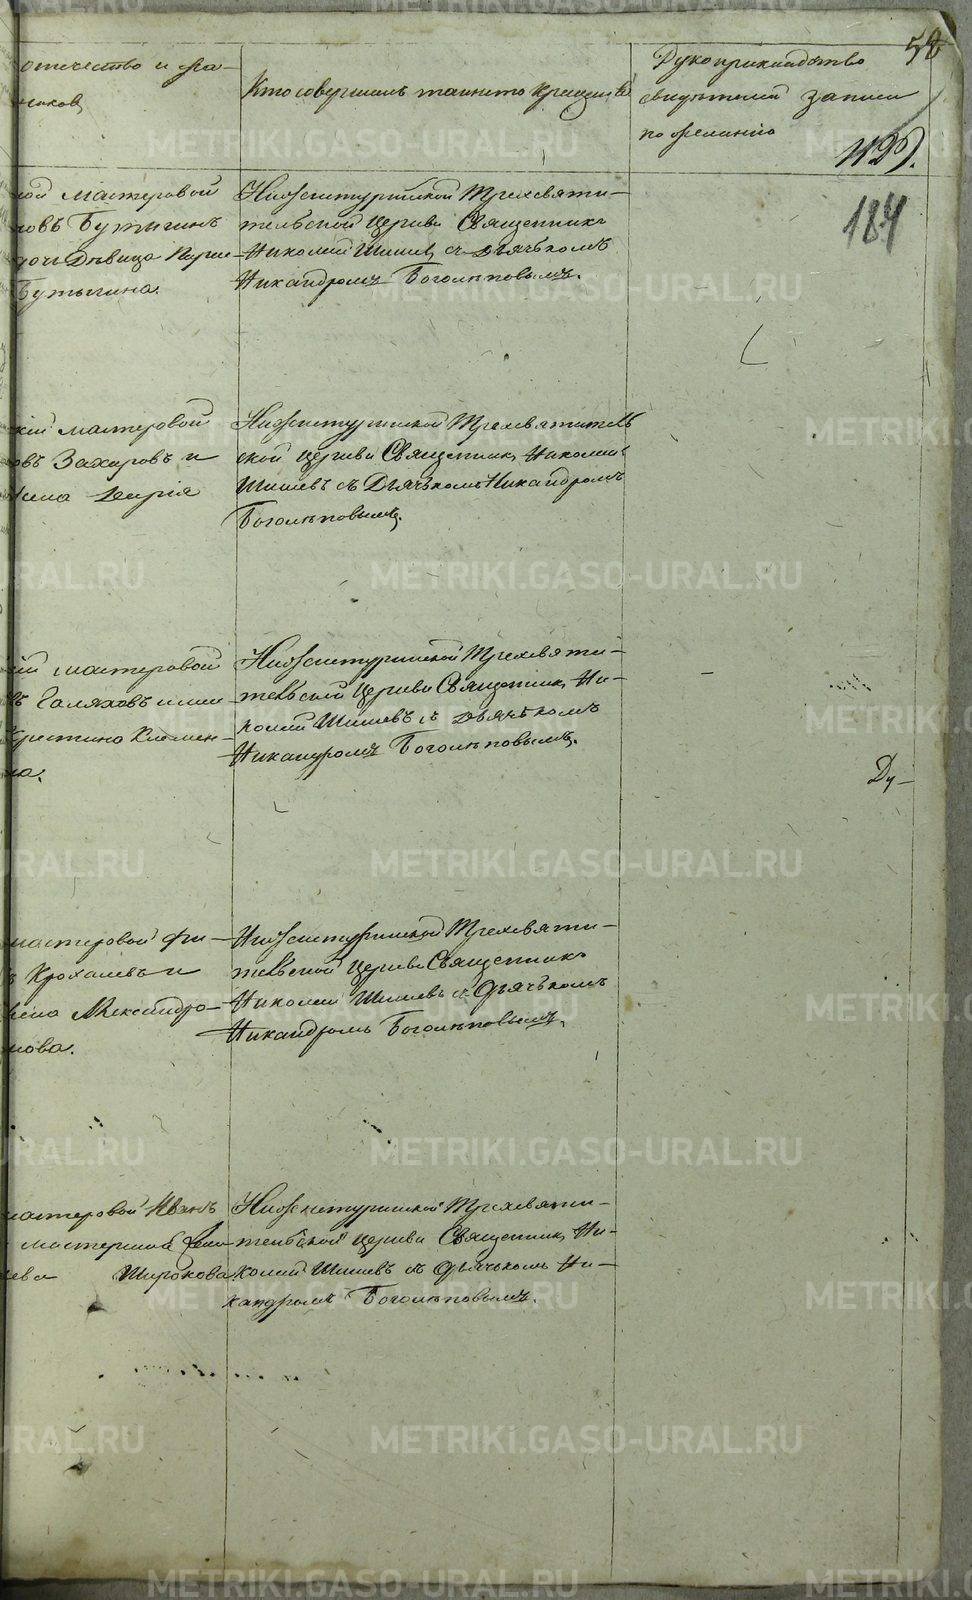 58
отчество и фа-
Кто совершалъ таинство крещенiя
Рукоприкладство
свидѣтелей записи
по желанiю
1129.
184
мастеровой
Бутыгинъ
дочь Дѣвица
Бутыгина.
Нижнетуринской Трехсвяти-
тельской Церкви Священникъ
Николай Шишевъ съ Дьячькомъ
Никандромъ Боголѣповымъ.
мастеровой
Захаровъ и
жена Дарiя
Нижнетуринской Трехсвятитель
ской Церкви Священникъ Николай
Шишевъ съ Дьячькомъ Никандромъ
Боголѣповымъ.
мастеровой
Галяховъ
Христина Климен-
на.
Нижнетуринской Трехсвяти-
тельской Церкви Священникъ Ни-
колай Шишевъ съ Дьячькомъ
Никандромъ Боголѣповымъ.
Ду-
мастеровой Фи-
Крохалевъ и
жена Александра
нова.
Нижнетуринской Трехсвяти-
тельской Церкви Священникъ
Николай Шишевъ съ Дьячькомъ
Никандромъ Боголѣповымъ.
мастеровой Иванъ
Широкова
Нижнетуринской Трехсвяти-
тельской Церкви Священникъ Ни-
колай Шишевъ съ Дьячькомъ Ни-
кандромъ Боголѣповымъ.
METRIKI.GASO-URAL.RU